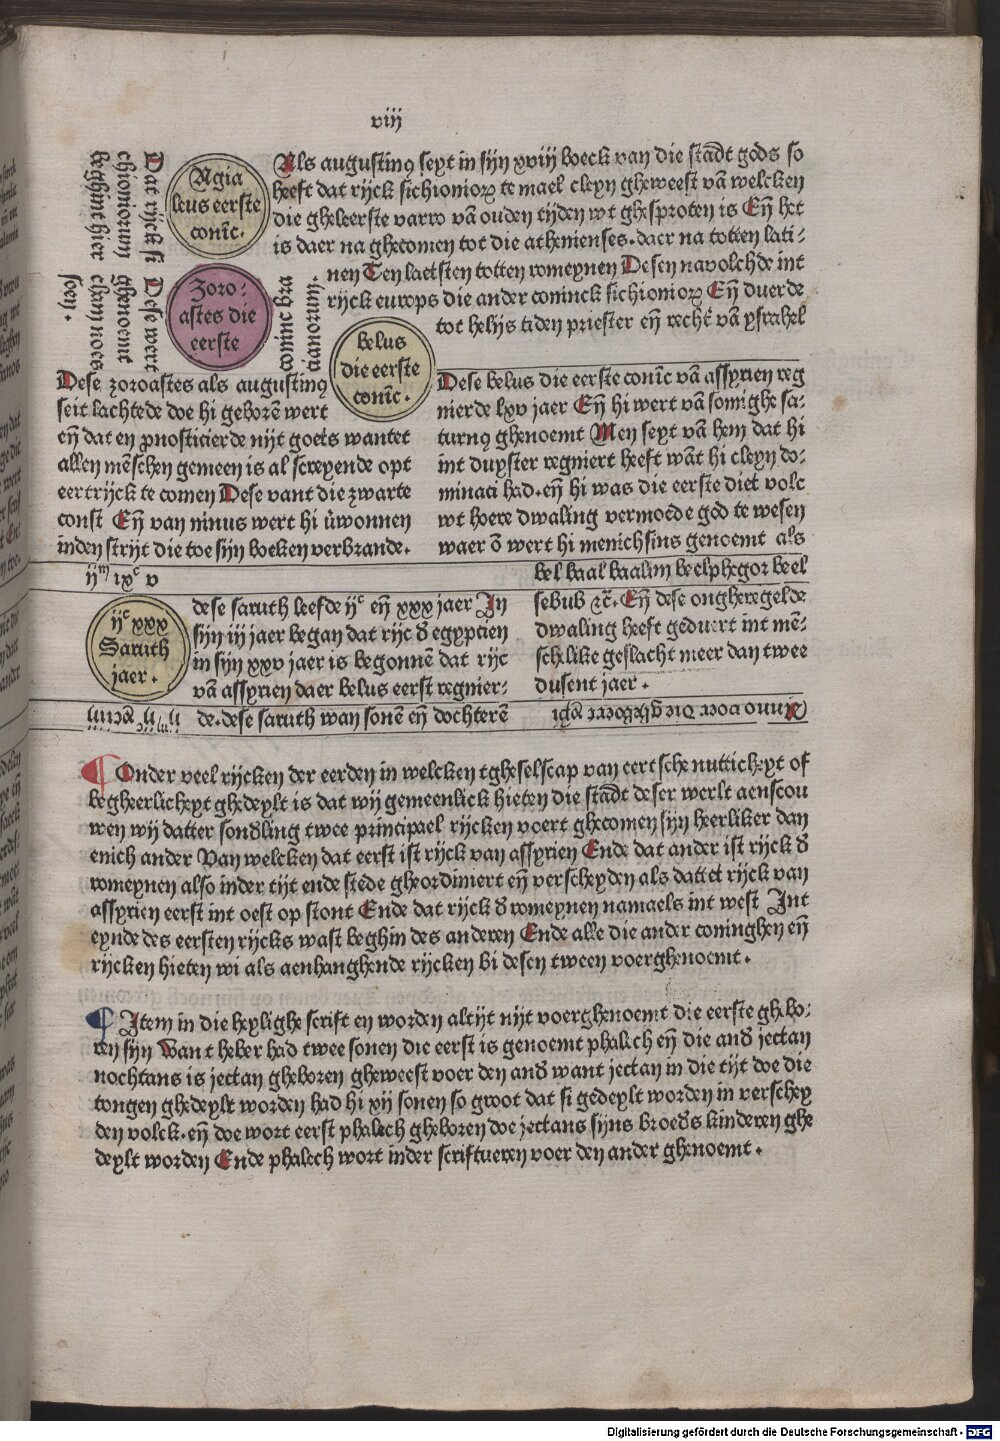 viij
Dat rijck si
chioniorum
beghint hier
Agia
leus eerste
conīc.
Als augustinꝯ seyt in sijn xviij boeck van die stadt gods so
heeft dat rijck sichioniorꝝ te mael cleyn gheweest vā welcken
die gheleerste varro vā ouden tijden wt ghesproten is Eñ het
is daer na ghecomen tot die athenienses. daer na totten lati-
nen Ten laetsten totten romeynen Desen navolchde int
rijck europs die ander coninck sichioniorꝝ Eñ duerde
tot helijs tiden priester eñ rechter vā ysrahel
Dese wert
ghenoemt
cham noes
soen.
Zoro-
astes die
eerste
coninc bra
cianorum.
belus
die eerste
conīc.
Dese zoroastes als augustinꝯ
seit lachtede doe hi geborē wert
eñ dat en ꝓnosticierde nijt goets wantet
allen mēschen gemeen is al screyende opt
eertrijck te comen Dese vant die zwarte
const Eñ van ninus wert hi v̄wonnen
inden strijt die toe sijn boeken verbrande.
Dese belus die eerste conīc vā assyrien reg
nierde lxv jaer Eñ hi wert vā somighe sa-
turnꝯ ghenoemt Men seyt vā hem dat hi
int duyster regniert heeft wāt hi cleyn do-
minaci had. eñ hi was die eerste diet volc
wt hoere dwaling vermoede god te wesen
waer ō wert hi menichsins genoemt als
bel baal baalim beelphegor beel
sebub ⁊c̄. Eñ dese ongheregelde
dwaling heeft geduert int mē-
schelike geslacht meer dan twee
dusent jaer.
ijᵐ ixᶜ v
ijᶜ xxx
Saruth
jaer.
dese saruth leefde ijᶜ eñ xxx jaer In
sijn iij jaer began dat rijc d̄ egypcien
in sijn xxv jaer is begonnē dat rijc
vā assyrien daer belus eerst regnier-
de. dese saruth wan sonē eñ dochterē
Anno voer die gheboert xp̄i
Onder veel rijcken der eerden in welcken tgheselscap van eertsche nutticheyt of
begheerlicheyt ghedeylt is dat wij gemeenlick hieten die stadt deser werlt aenscou
wen wij datter sond̄ling twee principael rijcken voert ghecomen sijn heerliker dan
enich ander Van welcken dat eerst ist rijck van assyrien Ende dat ander ist rijck d̄
romeynen also inder tijt ende stede gheordiniert eñ verscheyden als dattet rijck van
assyrien eerst int oest op stont Ende dat rijck d̄ romeynen namaels int west Int
eynde des eersten rijcks wast beghin des anderen Ende alle die ander coninghen eñ
rijcken hieten wi als aenhanghende rijcken bi desen tween voerghenoemt.
Item in die heylighe scrift en worden altijt nijt voerghenoemt die eerste ghebo-
ren sijn Want heber had twee sonen die eerst is genoemt phalech eñ die and̄ jectan
nochtans is jectan gheboren gheweest voer den and̄ want jectan in die tijt doe die
tongen ghedeylt worden had hi xij sonen so groot dat si gedeylt worden in verschey
den volck. eñ doe wort eerst phalech gheboren doe jectans sijns broed̄s kinderen ghe
deylt worden Ende phalech wort inder scriftueren voer den ander ghenoemt.
Digitalisierung gefördert durch die Deutsche Forschungsgemeinschaft - DFG